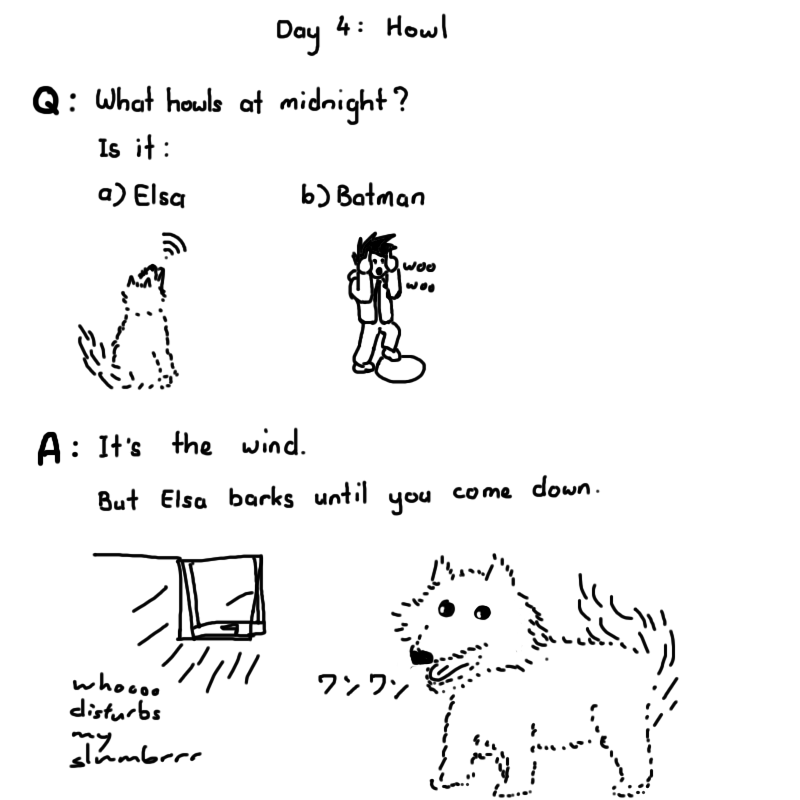 Day 4: Howl
Q: What howls at midnight?
Is it:
a) Elsa
b) Batman
woo
woo
A: It's the wind.
But Elsa barks until you come down.
whoooo
disturbs
my
slumbrrr
ワンワン